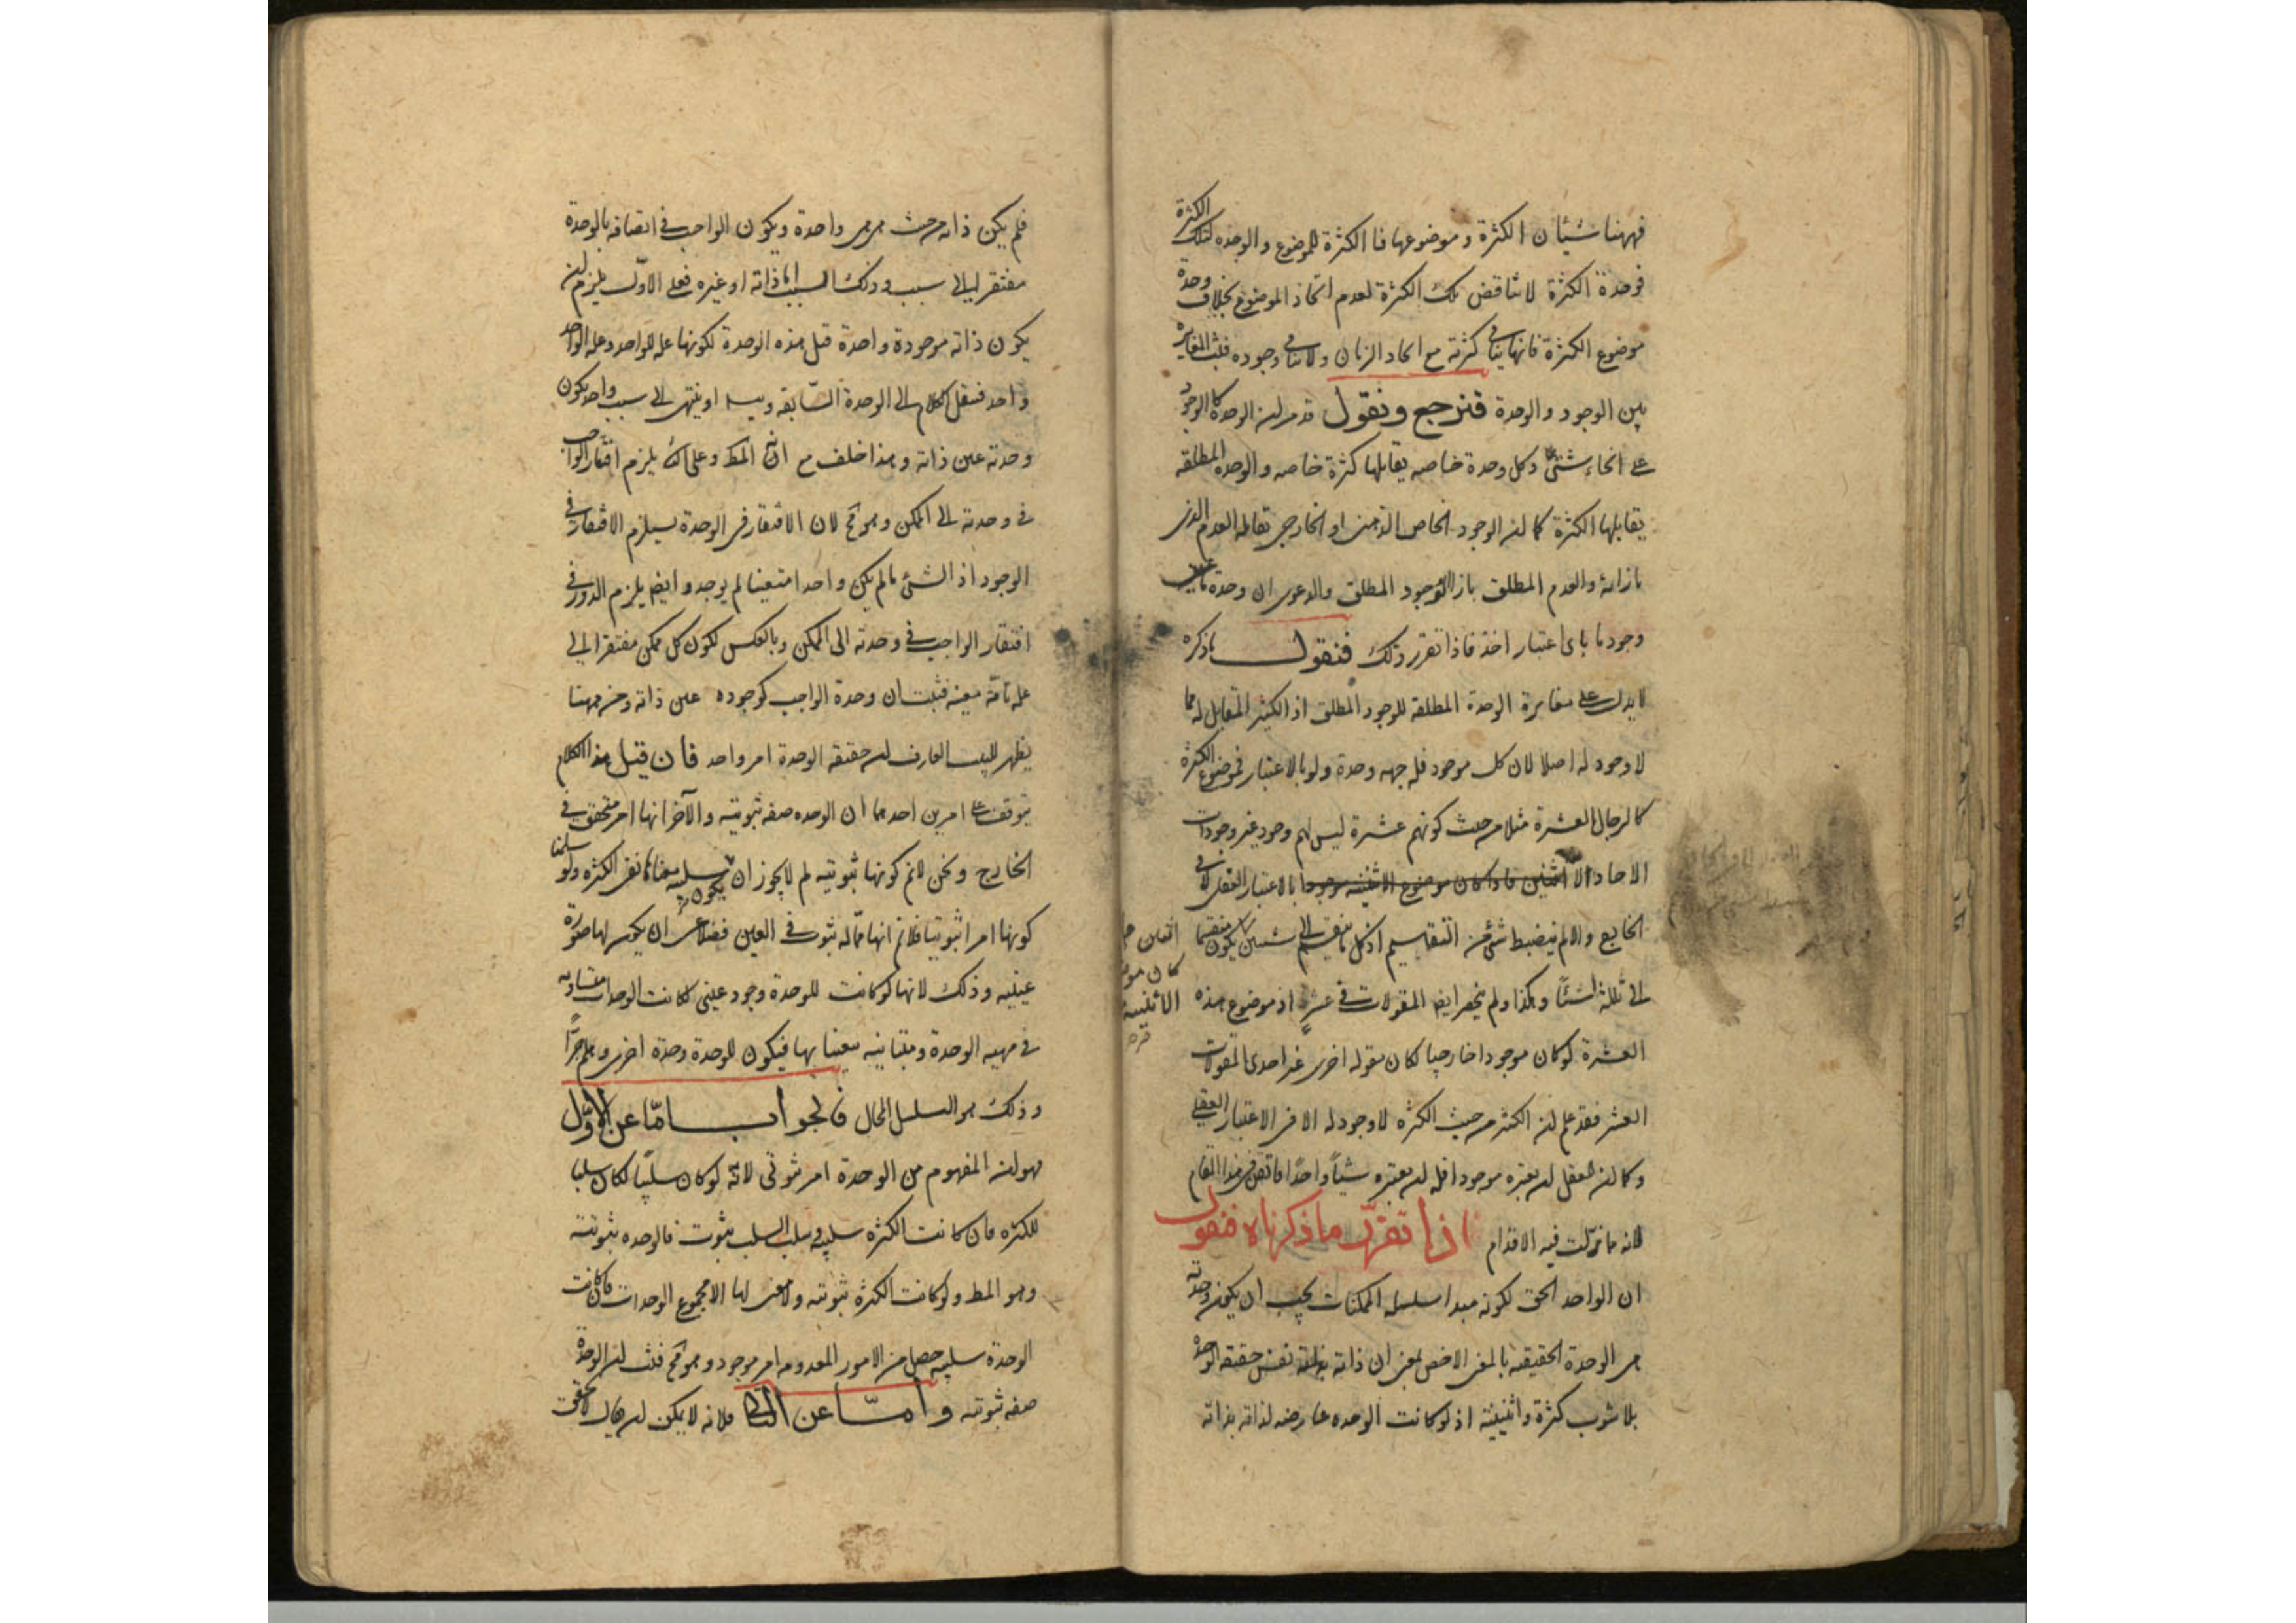 فههنا شيئان الكثرة و موضوعها فالكثرة للموضوع والوحده لتلك الكثرة
فوحدة الكثرة لا تناقض تلك الكثرة لعدم اتحاد الموضوع بخلاف وحدة
موضوع الكثرة فانها ينافى كثرته مع اتحاد الزمان ولا ينافى وجوده فثبت المغايرة
بين الوجود والوحدة فنرجع ونقول قد مر ان الوحدة كالوجود
على انحاء شتى وكل وحدة خاصه يقابلها كثرة خاصه والوحدة المطلقه
يقابلها الكثرة كما ان الوجود الخاص الذهنى او الخارجى يقابله العدم الذى
بازائه والعدم المطلق بازاء الوجود المطلق والدعوى ان وحدة ما عين
وجود ما باى اعتبار اخذ فاذا تقرر ذلك فنقول ما ذكره
لا يدل على مغايرة الوحدة المطلقه للوجود المطلق اذ الكثير المقابل له مما
لا وجود له اصلا لان كل موجود فله جهه وحدة ولو بالاعتبار فموضوع الكثرة
كالرجال العشرة مثلا من حيث كونهم عشرة ليس لهم وجود غير وجودات
الاحاد الا بالاعتبار العقلى لا فى
الخارج والا لم ينضبط شئ من التقاسيم اذ كل ما ينقسم الى شيئين يكون منقسما
الى ثلثة اشيئا وهكذا ولم ينحصر ايضا المقولات فى عشر اذ موضوع هذه
العشرة لو كان موجودا خارجيا لكان مقوله اخرى غير احدى المقولات
العشر فقد علم ان الكثير من حيث الكثرة لا وجود له الا فى الاعتبار العقلى
وكما ان للعقل ان يعتبره موجودا فله ان يعتبره شيئاً واحداً فاتقن هذا المقام
لانه ما زلت فيه الاقدام اذا تقرر ما ذكرناه فنقول
ان الواحد الحق لكونه مبدا سلسله الممكنات يجب ان يكون وحدته
هى الوحدة الحقيقيه بالمعنى الاخص بمعنى ان ذاته بذاته نفس حقيقه الوحدة
بلا شوب كثرة واثنينية اذ لو كانت الوحده عارضه لذاته بذاته
فلم يكن ذاته من حيث هى هى واحدة ويكون الواجب فى اتصافه بالوحدة
مفتقرا الى سبب وذلك السبب اما ذاته او غيره فعلى الاول يلزم ان
يكون ذاته موجودة واحدة قبل هذه الوحدة لكونها عله للواحد وعله الواحد
واحد فننقل الكلام الى الوحدة السابقه ويتسلسل او ينتهى الى سبب واحد يكون
وحدته عين ذاته وهذا خلف مع انه المط وعلى الثانى يلزم افتقار الواجب
فى وحدته الى الممكن وهو مح لان الافتقار فى الوحدة يستلزم الافتقار فى
الوجود اذ الشئ ما لم يكن واحدا متعينا لم يوجد وايضا يلزم الدور فى
افتقار الواجب فى وحدته الى الممكن وبالعكس لكون كل ممكن مفتقرا الى
عله تامّة معينه فثبت ان وحدة الواجب كوجوده عين ذاته ومن ههنا
يظهر للبيب العارف ان حقيقه الوحدة امر واحد فان قيل هذا الكلام
يتوقف على امرين احدهما ان الوحده صفه ثبوتيه والآخر انها امر متحقق فى
الخارج ونحن لانم كونها ثبوتيه لم لا يجوز ان يكون سلبيه معناها نفى الكثره ولو سلمنا
كونها امرا ثبوتيا فلا نم انها مما له ثبوت فى العين فضلا عن ان يكون لها صورة
عينيه وذلك لانها لو كانت للوحدة وجود عينى لكانت الوحدات متساويه
فى مهيه الوحدة ومتباينه بتعيناتها فيكون للوحدة وحدة اخرى وهلم جرّا
وذلك هو التسلسل المحال فالجواب امّا عن الاوّل
فهو ان المفهوم من الوحدة امر ثبوتى لانّه لو كان سلبيا لكان سلبا
للكثره فان كانت الكثره سلبيه وسلب السلب ثبوت فالوحده ثبوتيّة
وهو المط ولو كانت الكثرة ثبوتيه ولا معنى لها الا مجموع الوحدات فان كانت
الوحدة سلبيه حصل من الامور المعدومه امر موجود وهو مح فثبت ان الوحدة
صفه ثبوتيه وامّا عن الثانى فلانه لا يمكن ان يقال لا تحقق